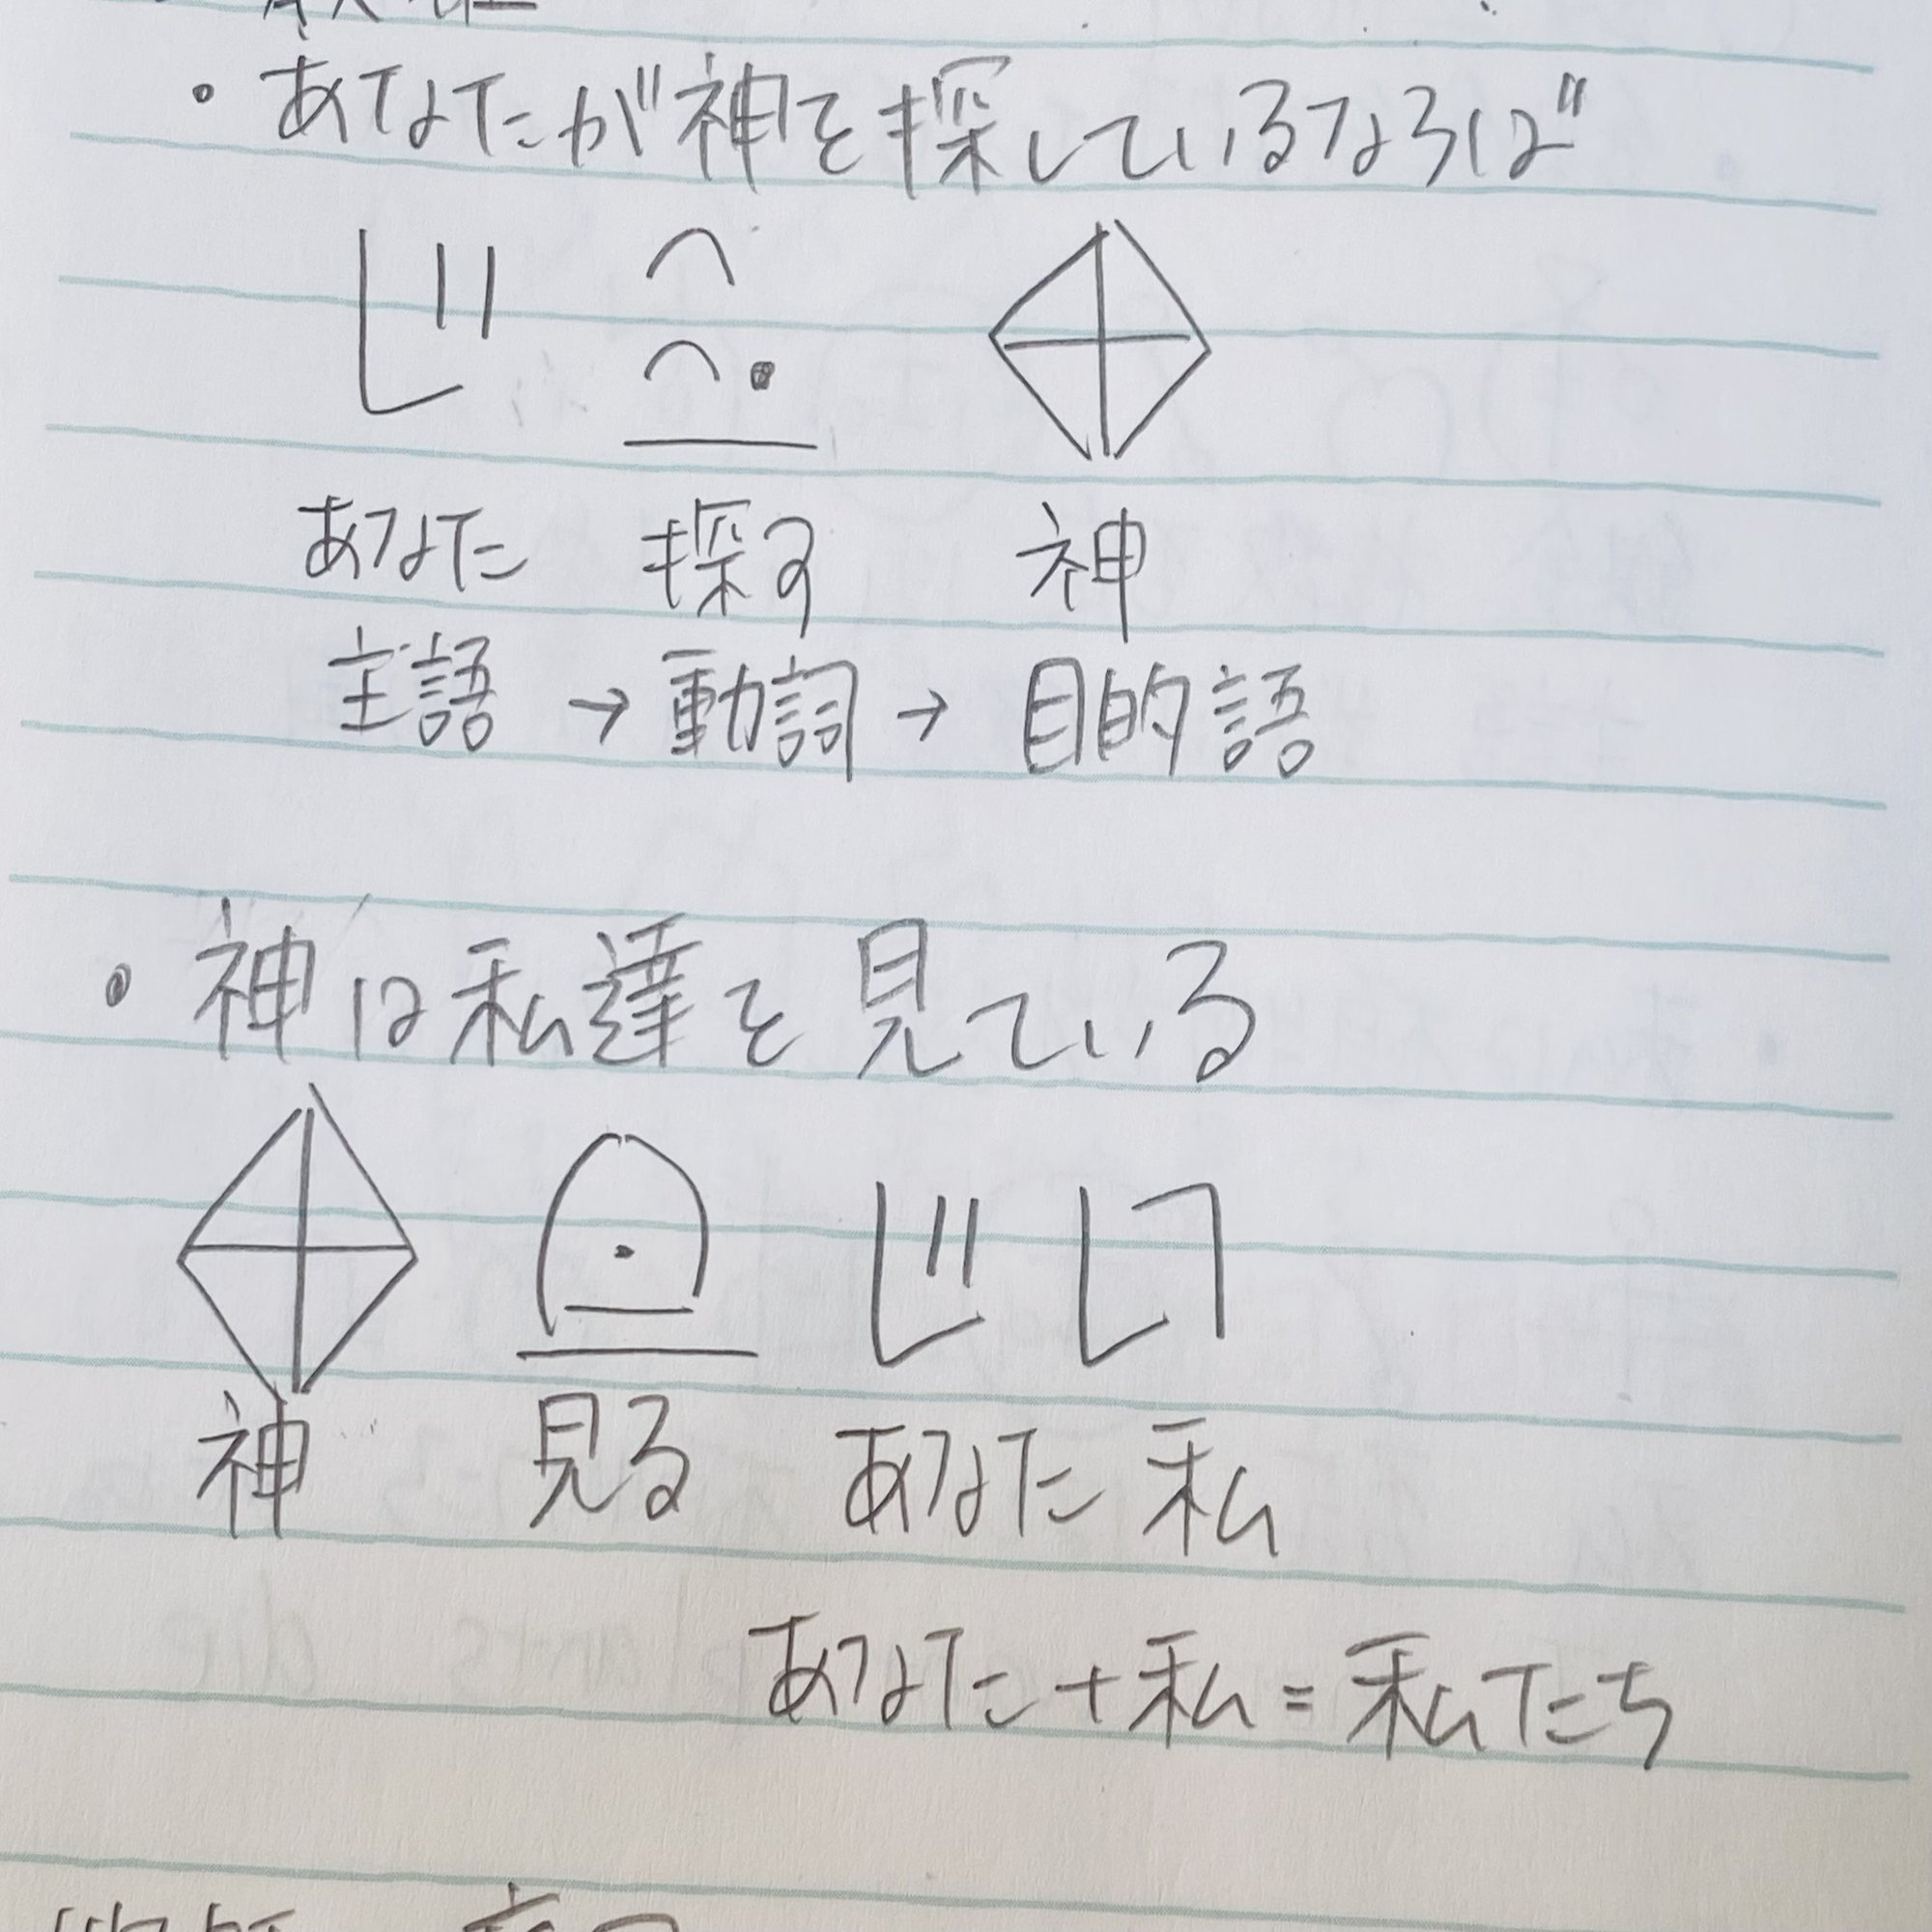 ・あなたが神を探しているならば
あなた 探す 神
主語 → 動詞 → 目的語
・神は私達を見ている
神 見る あなた 私
あなた+私=私たち